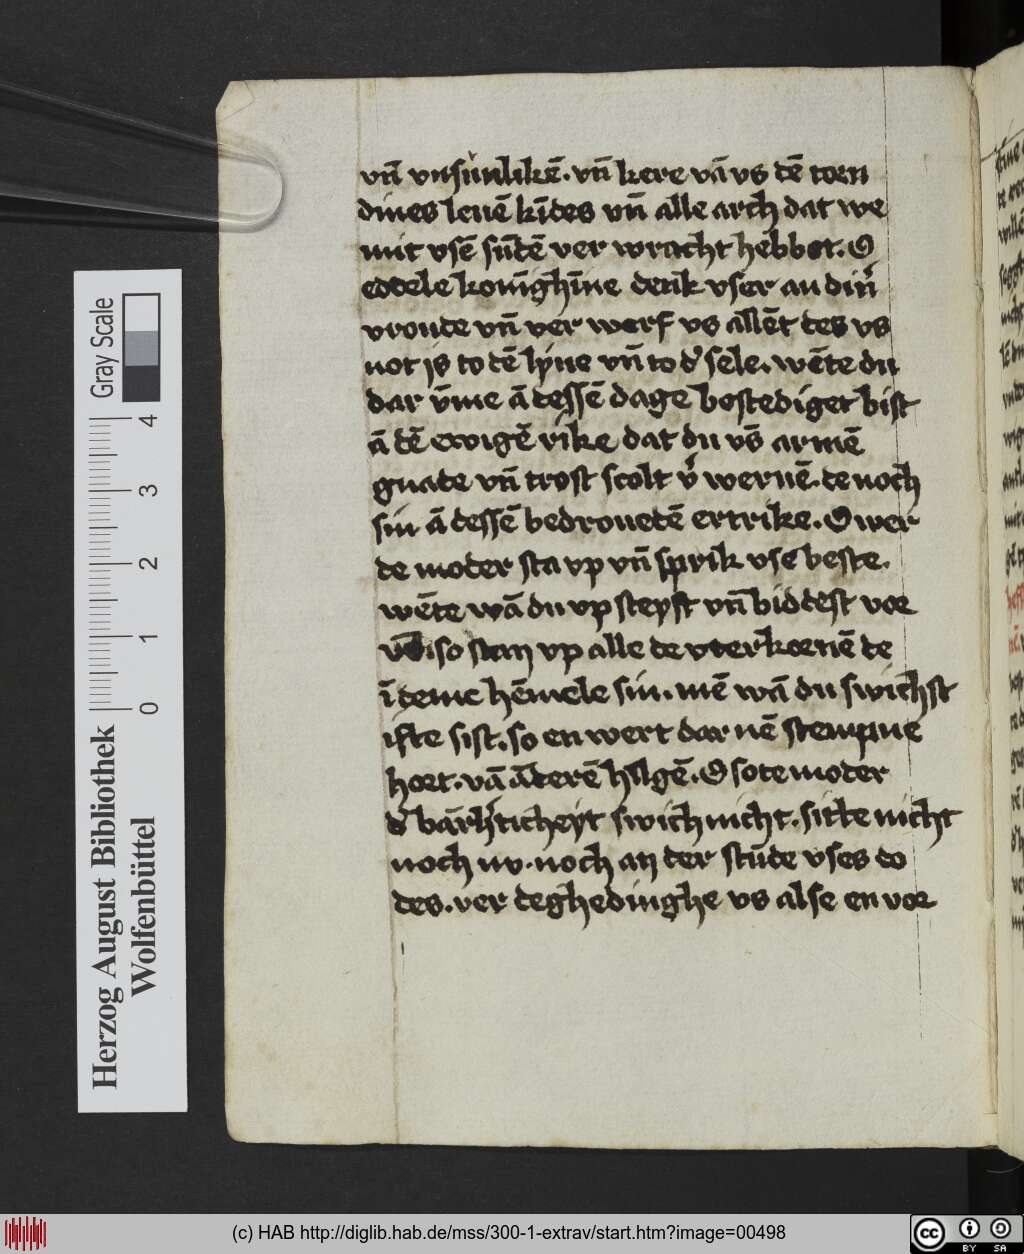 vn̄ vnsünlikē. vn̄ kere vā vs dē toen
dines leuē kīdes vn̄ alle arch dat we
mit vsē sūdē ver wracht hebbet. O
eddele konīghīne denk vser an din̄
vroude vn̄ ver werf vs allēt des vs
not is to dē lyue vn̄ to d' sele. wēte du
dar v̄me ā dessē dage bestediget bist
ā dē ewigē rike dat du vs̄ armē
gnade vn̄ trost scolt v' wernē. de noch
sin ā dessē bedrouedē ertrike. O wer
de moder sta vp vn̄ sprik vse beste.
wēte wā du vp steyst vn̄ biddest vor
vs. so stan vp alle de vterkornē de
ī deme hēmele sin. mē wā du swichst
ifte sist. so en wert dar nē stempne
hort. vā āderē hilgē. O sote moder
d' bārh'ticheyt swich nicht. sitte nicht
noch nv. noch an der stūde vses do
des. ver deghedinghe vs alse en vor
Herzog August Bibliothek
Wolfenbüttel
0 1 2 3 4
Gray Scale
(c) HAB http://diglib.hab.de/mss/300-1-extrav/start.htm?image=00498
cc BY SA